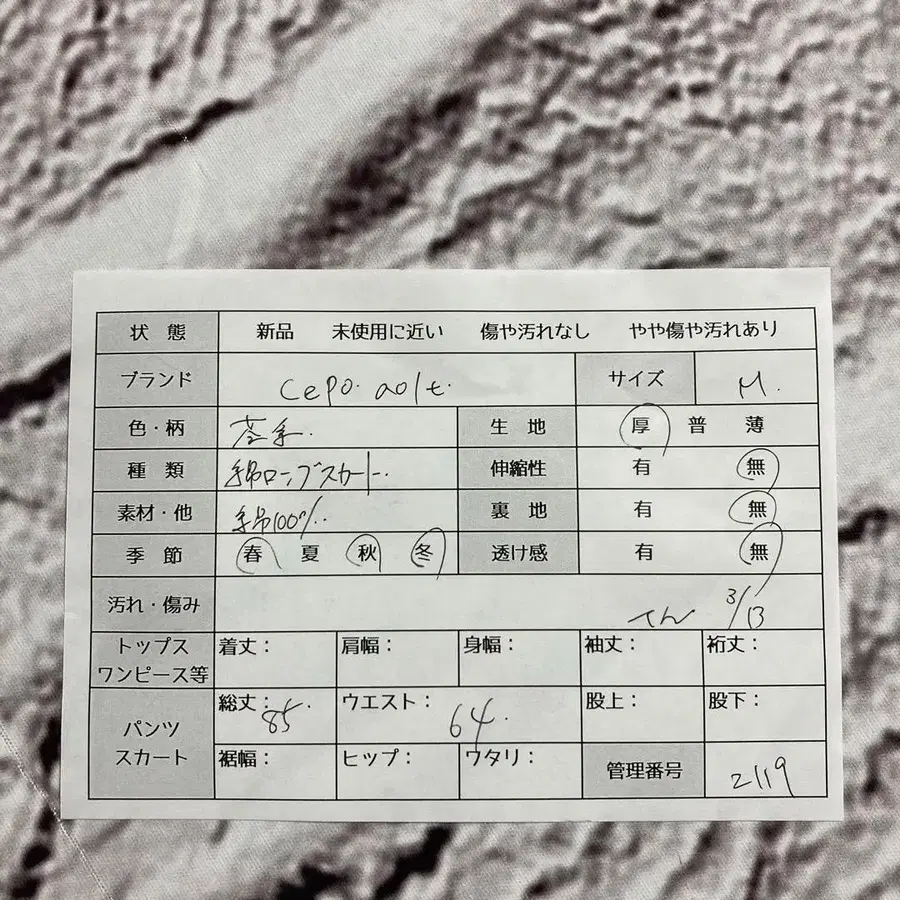 状態 新品 未使用に近い 傷や汚れなし やや傷や汚れあり
ブランド cepo. aolt. サイズ M.
色・柄 生地 厚 普 薄
種類 綿ロングスカート. 伸縮性 有 無
素材・他 綿100%. 裏地 有 無
季節 春 夏 秋 冬 透け感 有 無
汚れ・傷み 3/13
トップス ワンピース等 着丈: 肩幅: 身幅: 袖丈: 裄丈:
パンツ スカート 総丈: 85. ウエスト: 64. 股上: 股下:
裾幅: ヒップ: ワタリ: 管理番号 2119